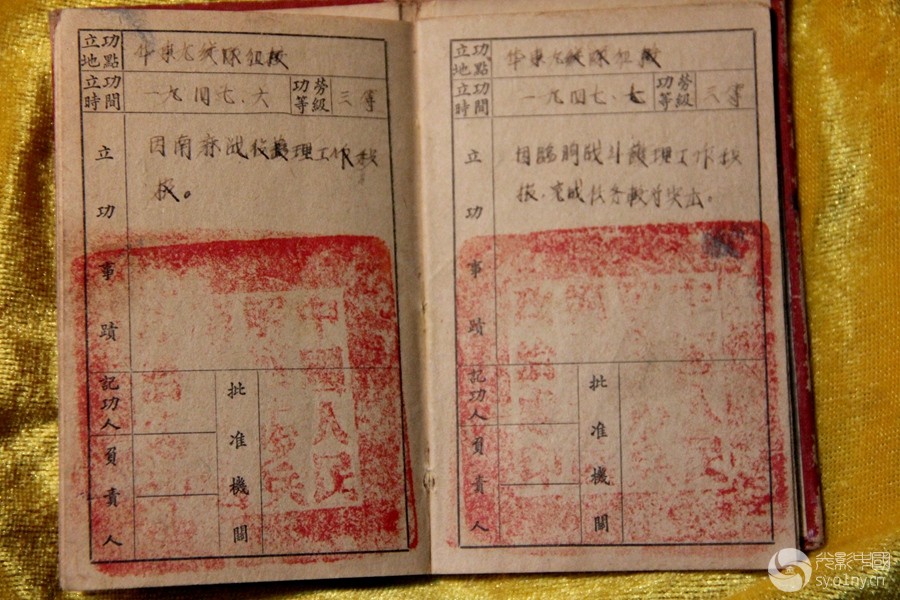 立功地點 华東九纵隊組校
立功時間 一九四七、六 功勞等級 三等
立功事蹟 因南麻战役護理工作积
极。
記功人員責人
批准機關
中國人民
兵
立功地點 华東九纵隊組校
立功時間 一九四七、七 功勞等級 三等
立功事蹟 因臨朐战斗護理工作积
极、完成任务較好突击。
記功人員責人
批准機關
光影中國
syoiny.cn